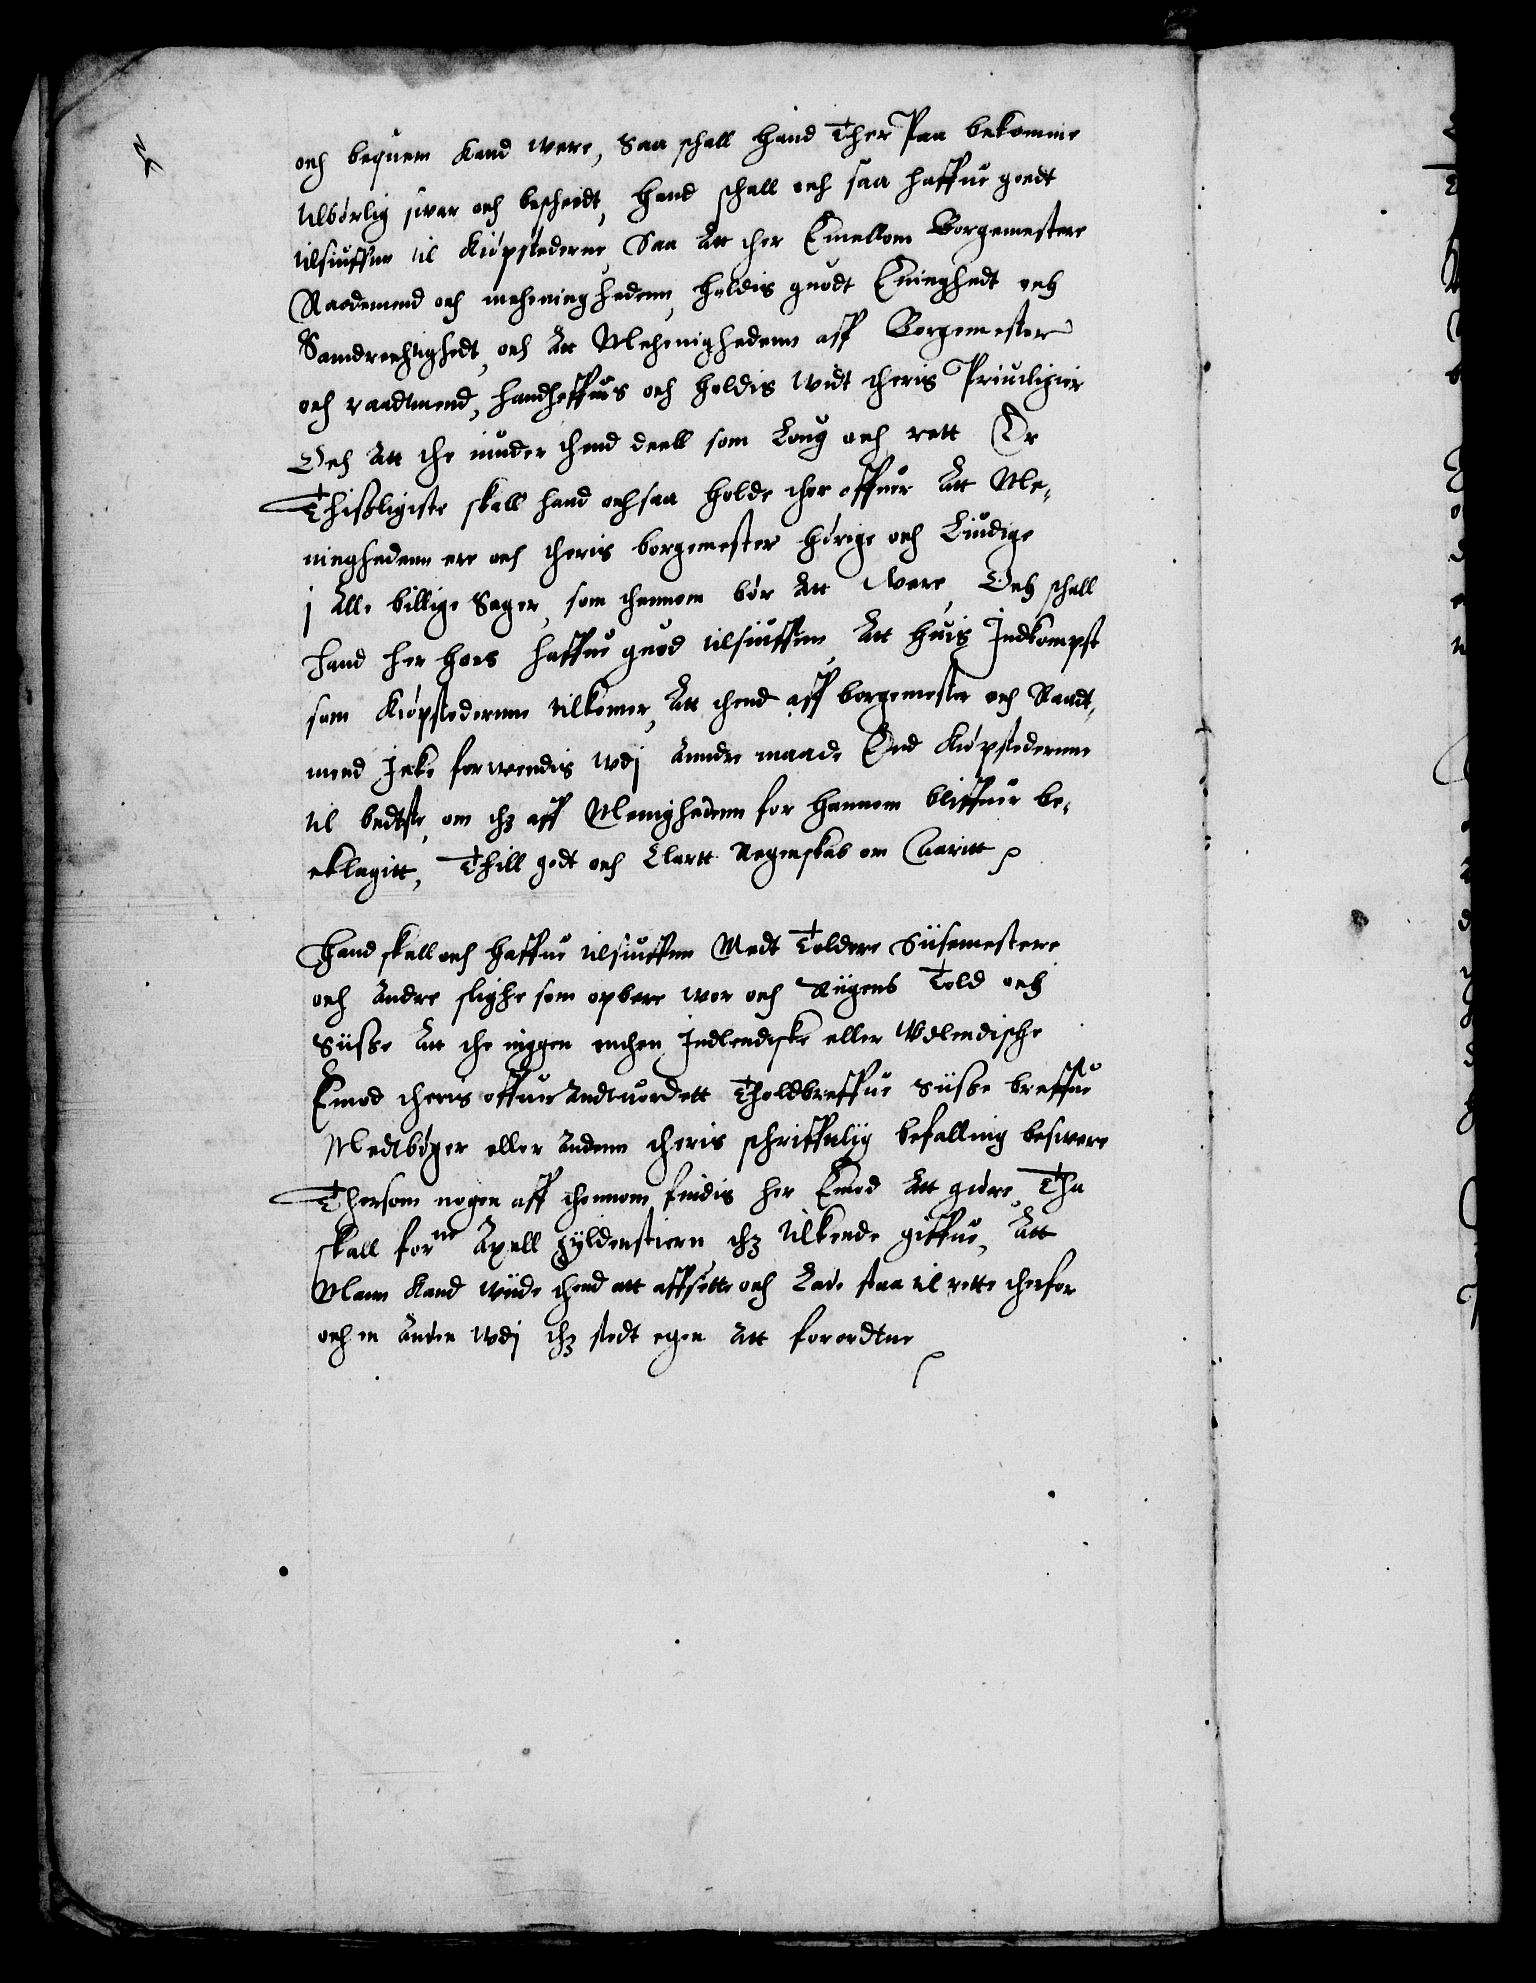 och bequem kand were, Saa schall hand Ther Paa bekomme
tilbørlig swar och beschedt, Hand schall och saa haffue goedt
tilsiuffnn til Kiøpstederne Saa Att ther Emellom Borgemestere
Raademend och mehninghedenn, holdis guodt Eninghedt och
Samdrechtighedt, och Att Mehenighedenn aff Borgemester
och raadtmend, handheffuis och holdis widt theris Priuiligier
Och Att the niuder thend deell som Loug och rett Er
Thisligiste skall hand ochsaa holde ther offuer Att Me-
ninghedenn ere och theris borgemester hørige och Liudige
j Alle billige Sager, som thennom bør Att were, Och schall
hand her hoes haffue guod tilsiuffnn Att huis Indkompst
som Kiøpstedernne tilkomer, Att thend aff borgemester och Raadt-
mend Icke forwendis wdj Anndre maade End Kiøpstedernne
til bedtste, om thz aff Menighedenn for hannom bliffuer be-
eklagitt, Thill godt och Clartt Regenskab om Aaritt
Hand skall och haffue tilsiuffnn Medt Toldere Siisemestere
och Andre slighe som opbere wor och Riigens Told och
Siisse Att the inggen enchen Indlendiske eller Wdlendische
Emod theris offuer Andtuordett Tholdbreffue Siisse breffue
Medtbøger eller Andenn theris schrifftlig befalling beswere
Thersom nogen aff thennom findis her Emod Att giøre, Tha
skall forne Axell Gyldenstiern thz tilkende giffue, Att
Mann Kand wiide thend att affsette och Lade staa til rette therfor
och en Anden wdj thz stedt egen Att forordtne